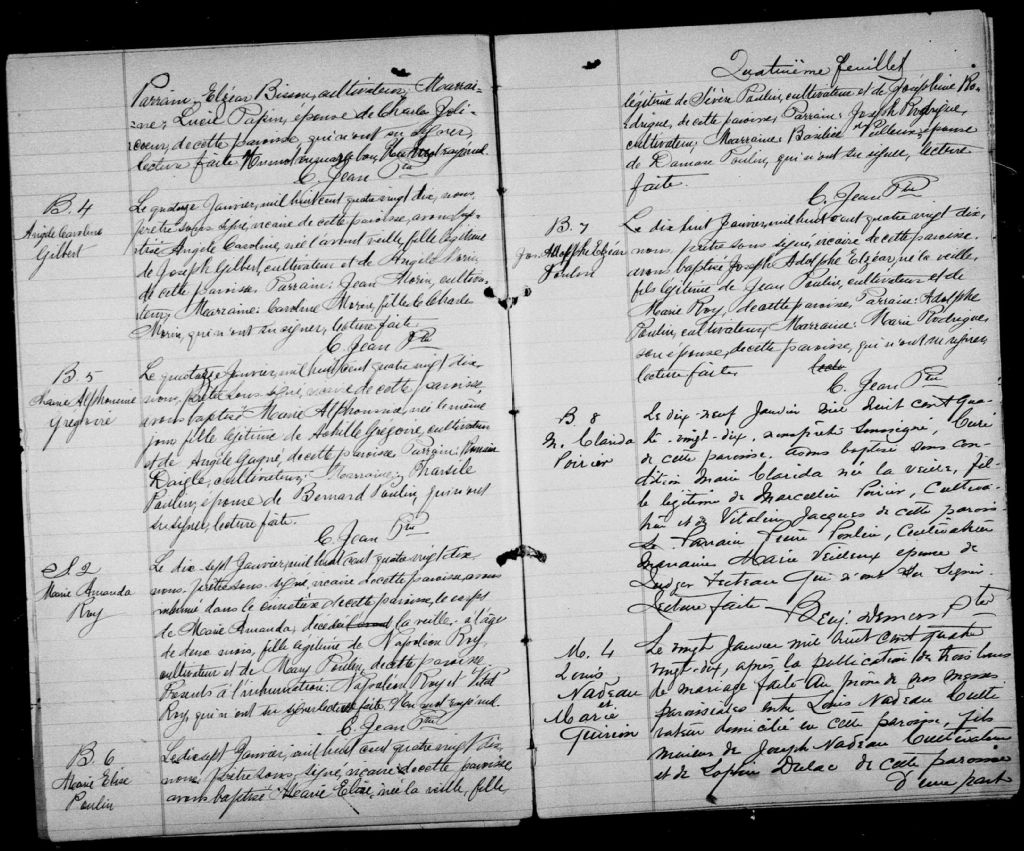 Parrain, Elzéar Bisson, cultivateur, Marrai-
ne; Lucie Papin, épouse de Charles Joli-
coeur, de cette paroisse, qui n'ont su signer,
lecture faite.
C. Jean Ptre
B. 4
Angèle Caroline
Gilbert
Le quatorze Janvier, mil huit cent quatre vingt dix, nous,
prêtre sous-signé, vicaire de cette paroisse, avons bap-
tisé Angèle Caroline, née l'avant veille, fille légitime
de Joseph Gilbert, cultivateur et de Angèle Morin,
de cette paroisse. Parrain: Jean Morin, cultiva-
teur; Marraine: Caroline Morin, fille de Charles
Morin, qui n'ont su signer, lecture faite.
C. Jean Ptre
B. 5
Marie Alphonsine
Grégoire
Le quatorze Janvier, mil huit cent quatre vingt dix,
nous, prêtre sous-signé, vicaire de cette paroisse,
avons baptisé Marie Alphonsine, née le même
jour, fille légitime de Achille Grégoire, cultivateur
et de Angèle Gagné, de cette paroisse. Parrain: Romain
Daigle, cultivateur; Marraine: Tharsile
Poulin, épouse de Bernard Poulin, qui n'ont
su signer, lecture faite.
C. Jean Ptre
S. 2
Marie Amanda
Roy
Le dix sept Janvier, mil huit cent quatre vingt dix
nous, prêtre sous-signé, vicaire de cette paroisse, avons
inhumé dans le cimetière de cette paroisse, le corps
de Marie Amanda, décédée la veille, à l'âge
de deux mois, fille légitime de Napoléon Roy,
cultivateur et de Mary Poulin, de cette paroisse.
Présents à l'inhumation: Napoléon Roy et Vital
Roy, qui n'ont su signer lecture faite.
C. Jean Ptre
B. 6
Marie Elise
Poulin
Le dix sept Janvier, mil huit cent quatre vingt dix,
nous, prêtre sous-signé, vicaire de cette paroisse,
avons baptisé Marie Elise, née la veille, fille
Quatrième feuillet
légitime de Sévère Poulin, cultivateur et de Joséphine Ro-
drigue, de cette paroisse, Parrain: Joseph Rodrigue,
cultivateur, Marraine Basilice Veilleux, épouse
de Damase Poulin, qui n'ont su signer, lecture
faite.
C. Jean Ptre
B. 7
Jos. Adolphe Elzéar
Poulin
Le dix huit Janvier, mil huit cent quatre vingt dix,
nous, prêtre sous-signé, vicaire de cette paroisse,
avons baptisé Joseph Adolphe Elzéar, né la veille,
fils légitime de Jean Poulin, cultivateur et de
Marie Roy, de cette paroisse, Parrain: Adolphe
Poulin, cultivateur, Marraine: Marie Rodrigue,
son épouse, de cette paroisse, qui n'ont su signer,
lecture faite.
C. Jean Ptre
B 8
M. Clarida
Poirier
Le dix-neuf Janvier mil huit cent qua-
tre-vingt-dix, nous prêtre soussigné, Curé
de cette paroisse, avons baptisé sous con-
dition Marie Clarida née la veille, fil-
le légitime de Marcelin Poirier, Cultiva-
teur et de Vitaline Jacques de cette parois-
se. Parrain Pierre Poulin, Cultivateur
Marraine Marie Veilleux épouse de
Ludger Lecteau qui n'ont su signer
Lecture faite—
Benj. Demers Ptre
M. 4
Louis
Nadeau
et
Marie
Quirion
Le vingt Janvier mil huit cent quatre
vingt-dix, après la publication de trois bans
de mariage faite au prône de nos messes
paroissiales entre Louis Nadeau Culti-
vateur domicilié en cette paroisse, fils
mineur de Joseph Nadeau Cultivateur
et de Sophie Dulac de cette paroisse
D'une part